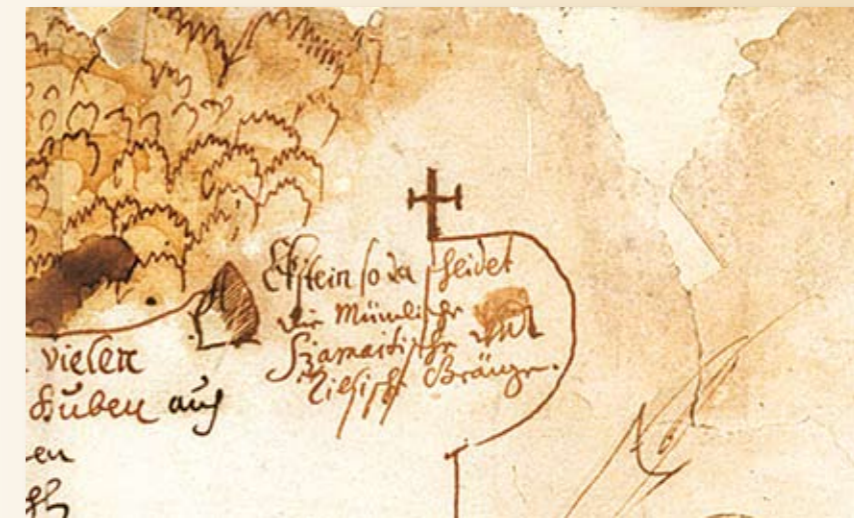 Ekstein so da scheidet
die Mümlische und
Szamaitische
Zilsische Gränze.
vielen
Gruben auf
en